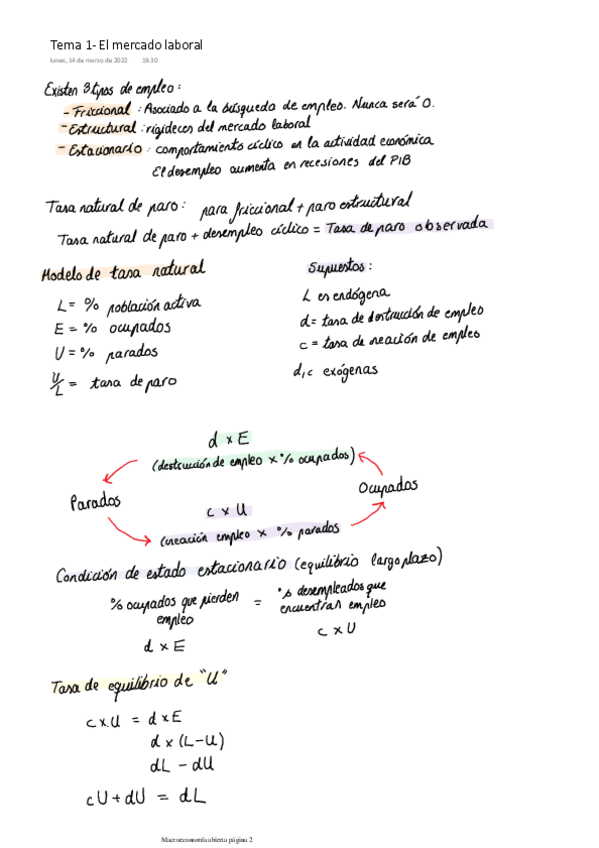 Tema 1- El mercado laboral
lunes, 14 de marzo de 2022 19:30
Existen 3 tipos de empleo:
- Friccional : Asociado a la búsqueda de empleo. Nunca será 0.
- Estructural : rigideces del mercado laboral
- Estacionario : comportamiento cíclico en la actividad económica
El desempleo aumenta en recesiones del PIB
Tasa natural de paro: para friccional + paro estructural
Tasa natural de paro + desempleo cíclico = Tasa de paro observada
Modelo de tasa natural
L = % población activa
E = % ocupados
U = % parados
U/L = tasa de paro
Supuestos:
L es endógena
d = tasa de destrucción de empleo
c = tasa de creación de empleo
d, c exógenas
d x E
(destrucción de empleo x % ocupados)
Parados
Ocupados
c x U
(creación empleo x % parados
Condición de estado estacionario (equilibrio largo plazo)
% ocupados que pierden empleo = % desempleados que encuentran empleo
d x E
c x U
Tasa de equilibrio de "U"
c x U = d x E
d x (L-U)
dL - dU
cU + dU = dL
Macroeconomía abierta página 2